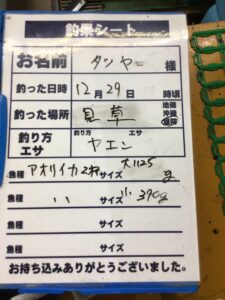 釣果シート
お名前 タツヤー 様
釣った日時 12月29日 時頃
釣った場所 見草 地磯 沖磯 堤防
釣り方 エサ 釣り方 ヤエン エサ
魚種 アオリイカ2杯 サイズ 大1125 g
魚種 〃 サイズ 小390g
魚種 サイズ
魚種 サイズ
お持ち込みありがとうございました。